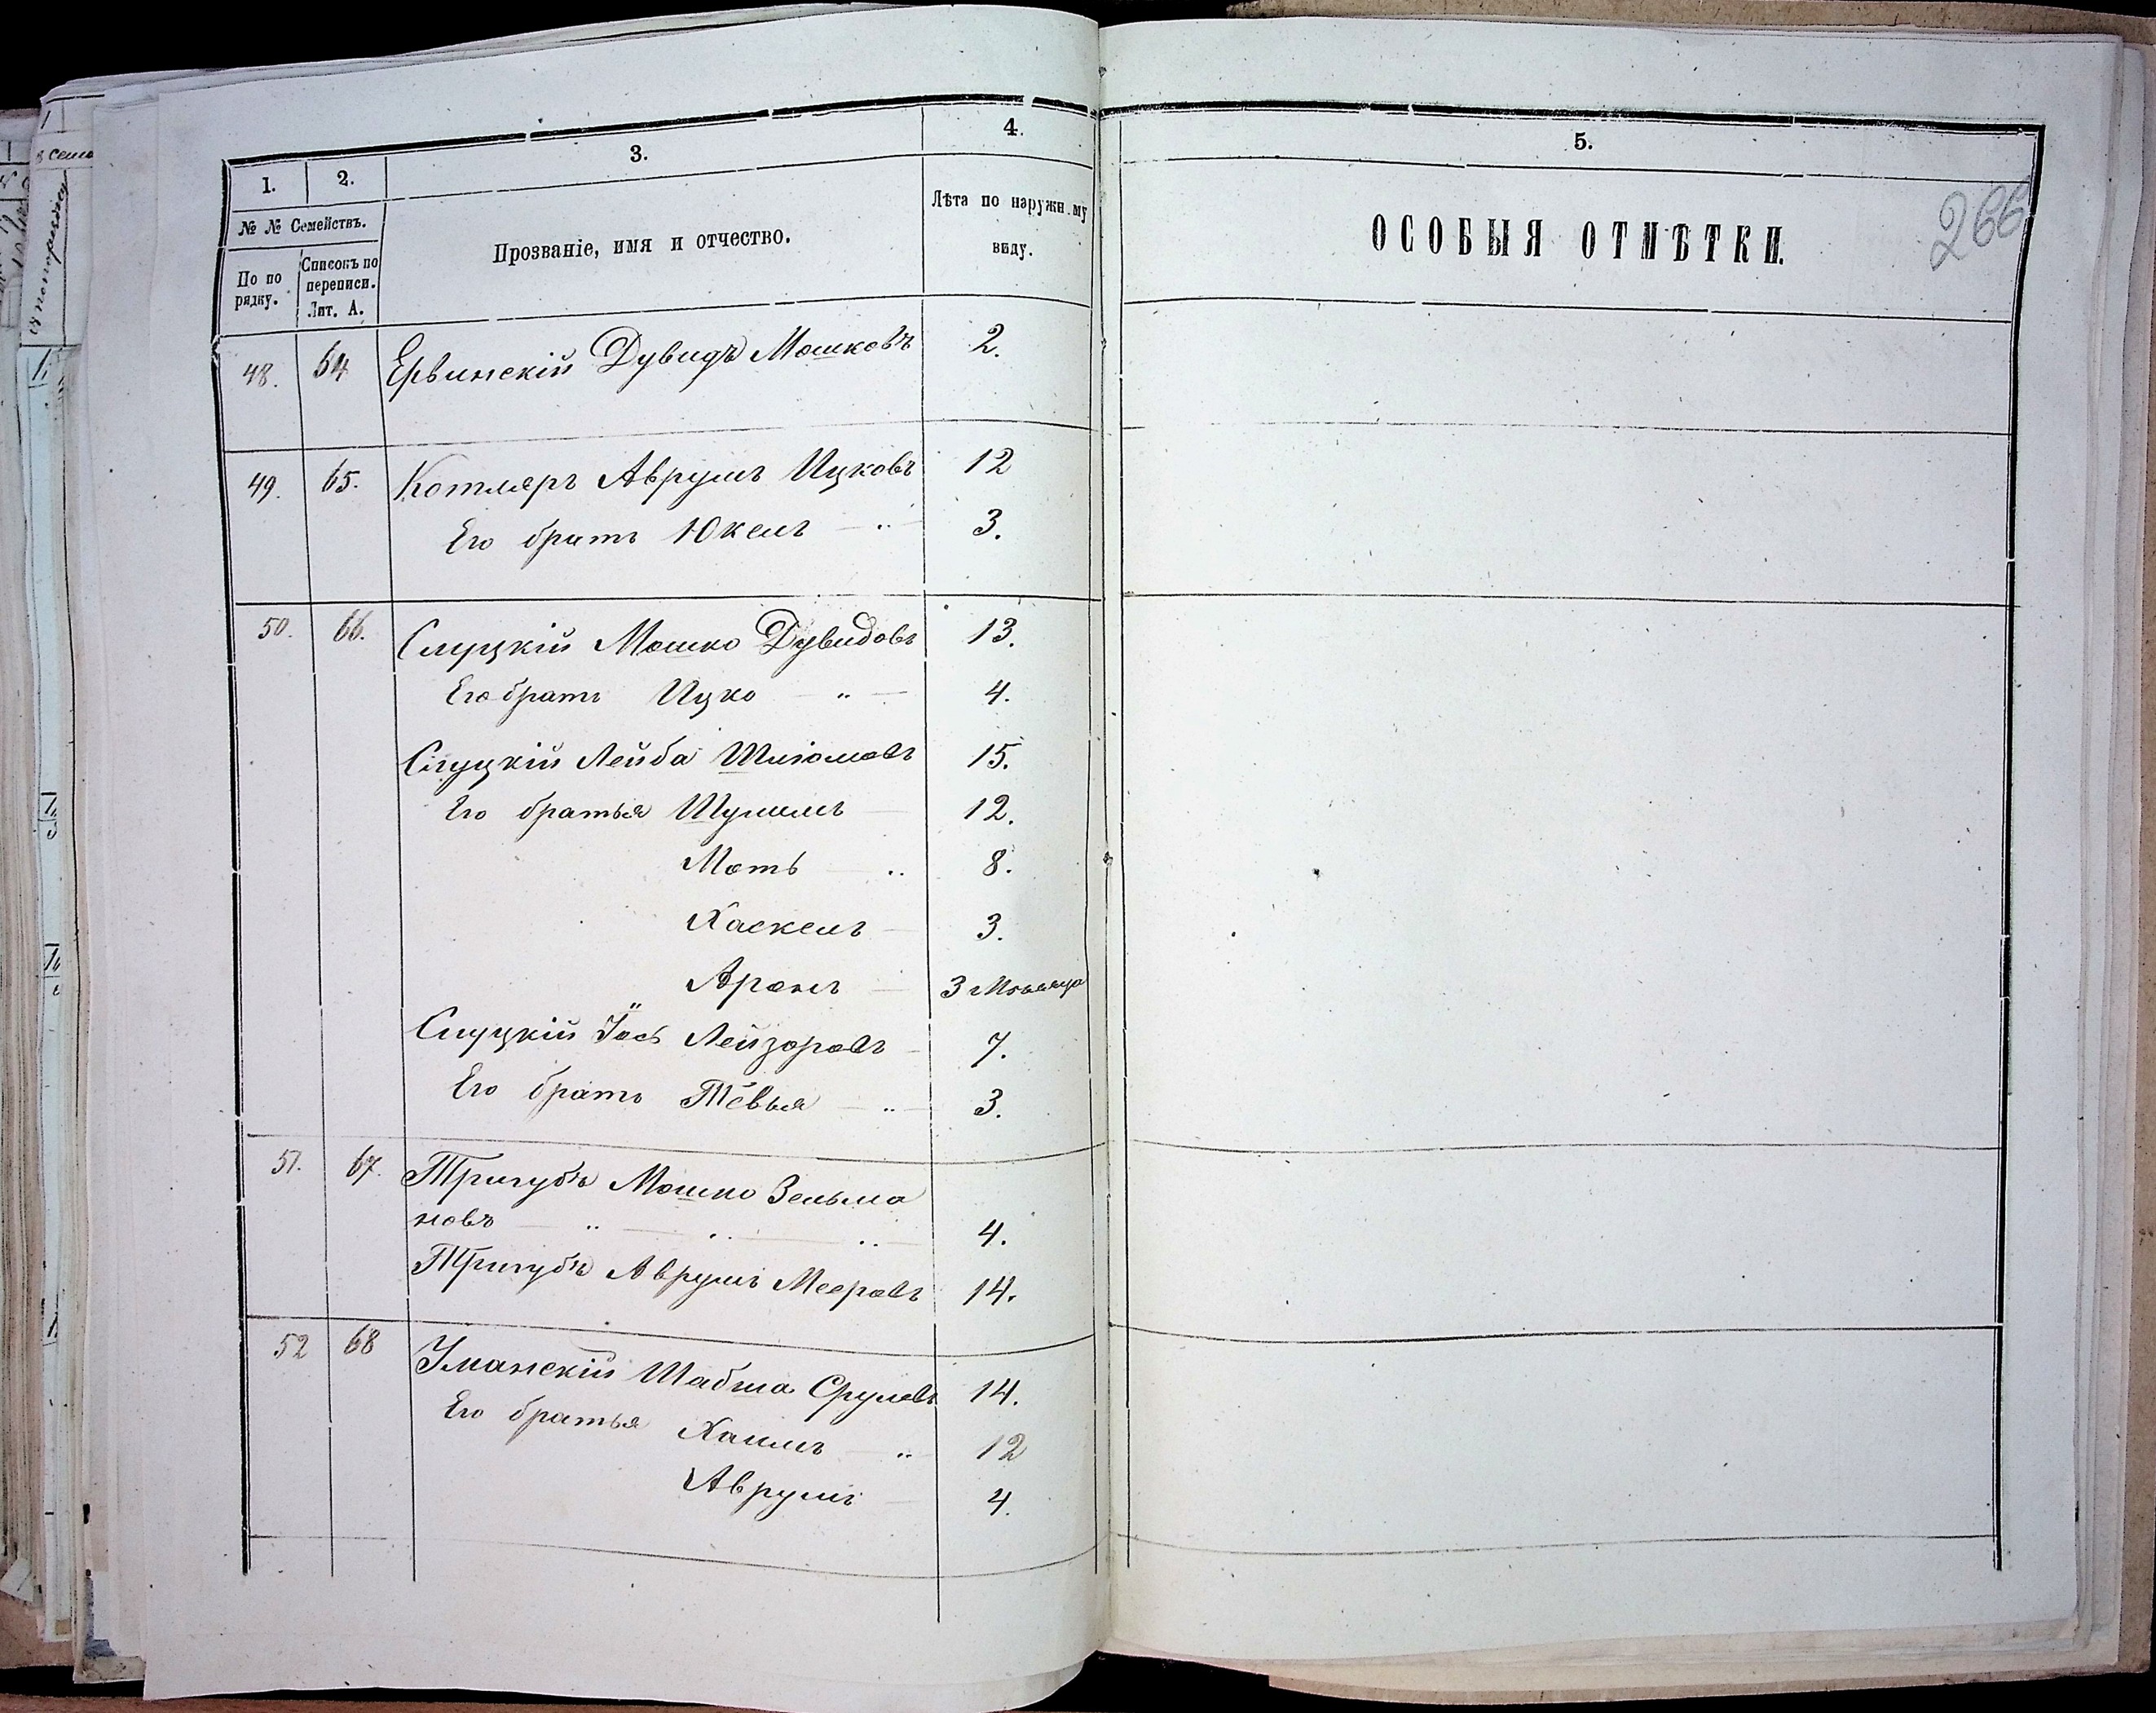 1. 2. 3. 4. 5.
№ № Семействъ.
По по рядку.
Списокъ по переписи. Лит. А.
Прозваніе, имя и отчество.
Лѣта по наружн му виду.
ОСОБЫЯ ОТМѢТКИ.
266
48. 64 Ервинскій Дувидъ Мошковъ 2.
49. 65. Котляръ Аврумъ Ицковъ 12
Его братъ Юкель — „ 3.
50. 66. Слуцкій Мошко Дувидовъ 13.
Его братъ Ицко — „ — 4.
Слуцкій Лейба Шліомовъ 15.
Его братья Шулимъ — 12.
Моть — „ 8.
Хаскель — 3.
Аронъ — 3 Мѣсяца
Слуцкій Іось Лейзоровъ — 7.
Его братъ Тевья — „ — 3.
51. 67. Тригубъ Мошко Зельма
новъ — „ — „ — „ — 4.
Тригубъ Аврумъ Мееровъ 14.
52 68 Уманскій Шабша Срулевъ 14.
Его братья Хаимъ — „ 12
Аврумъ — 4.